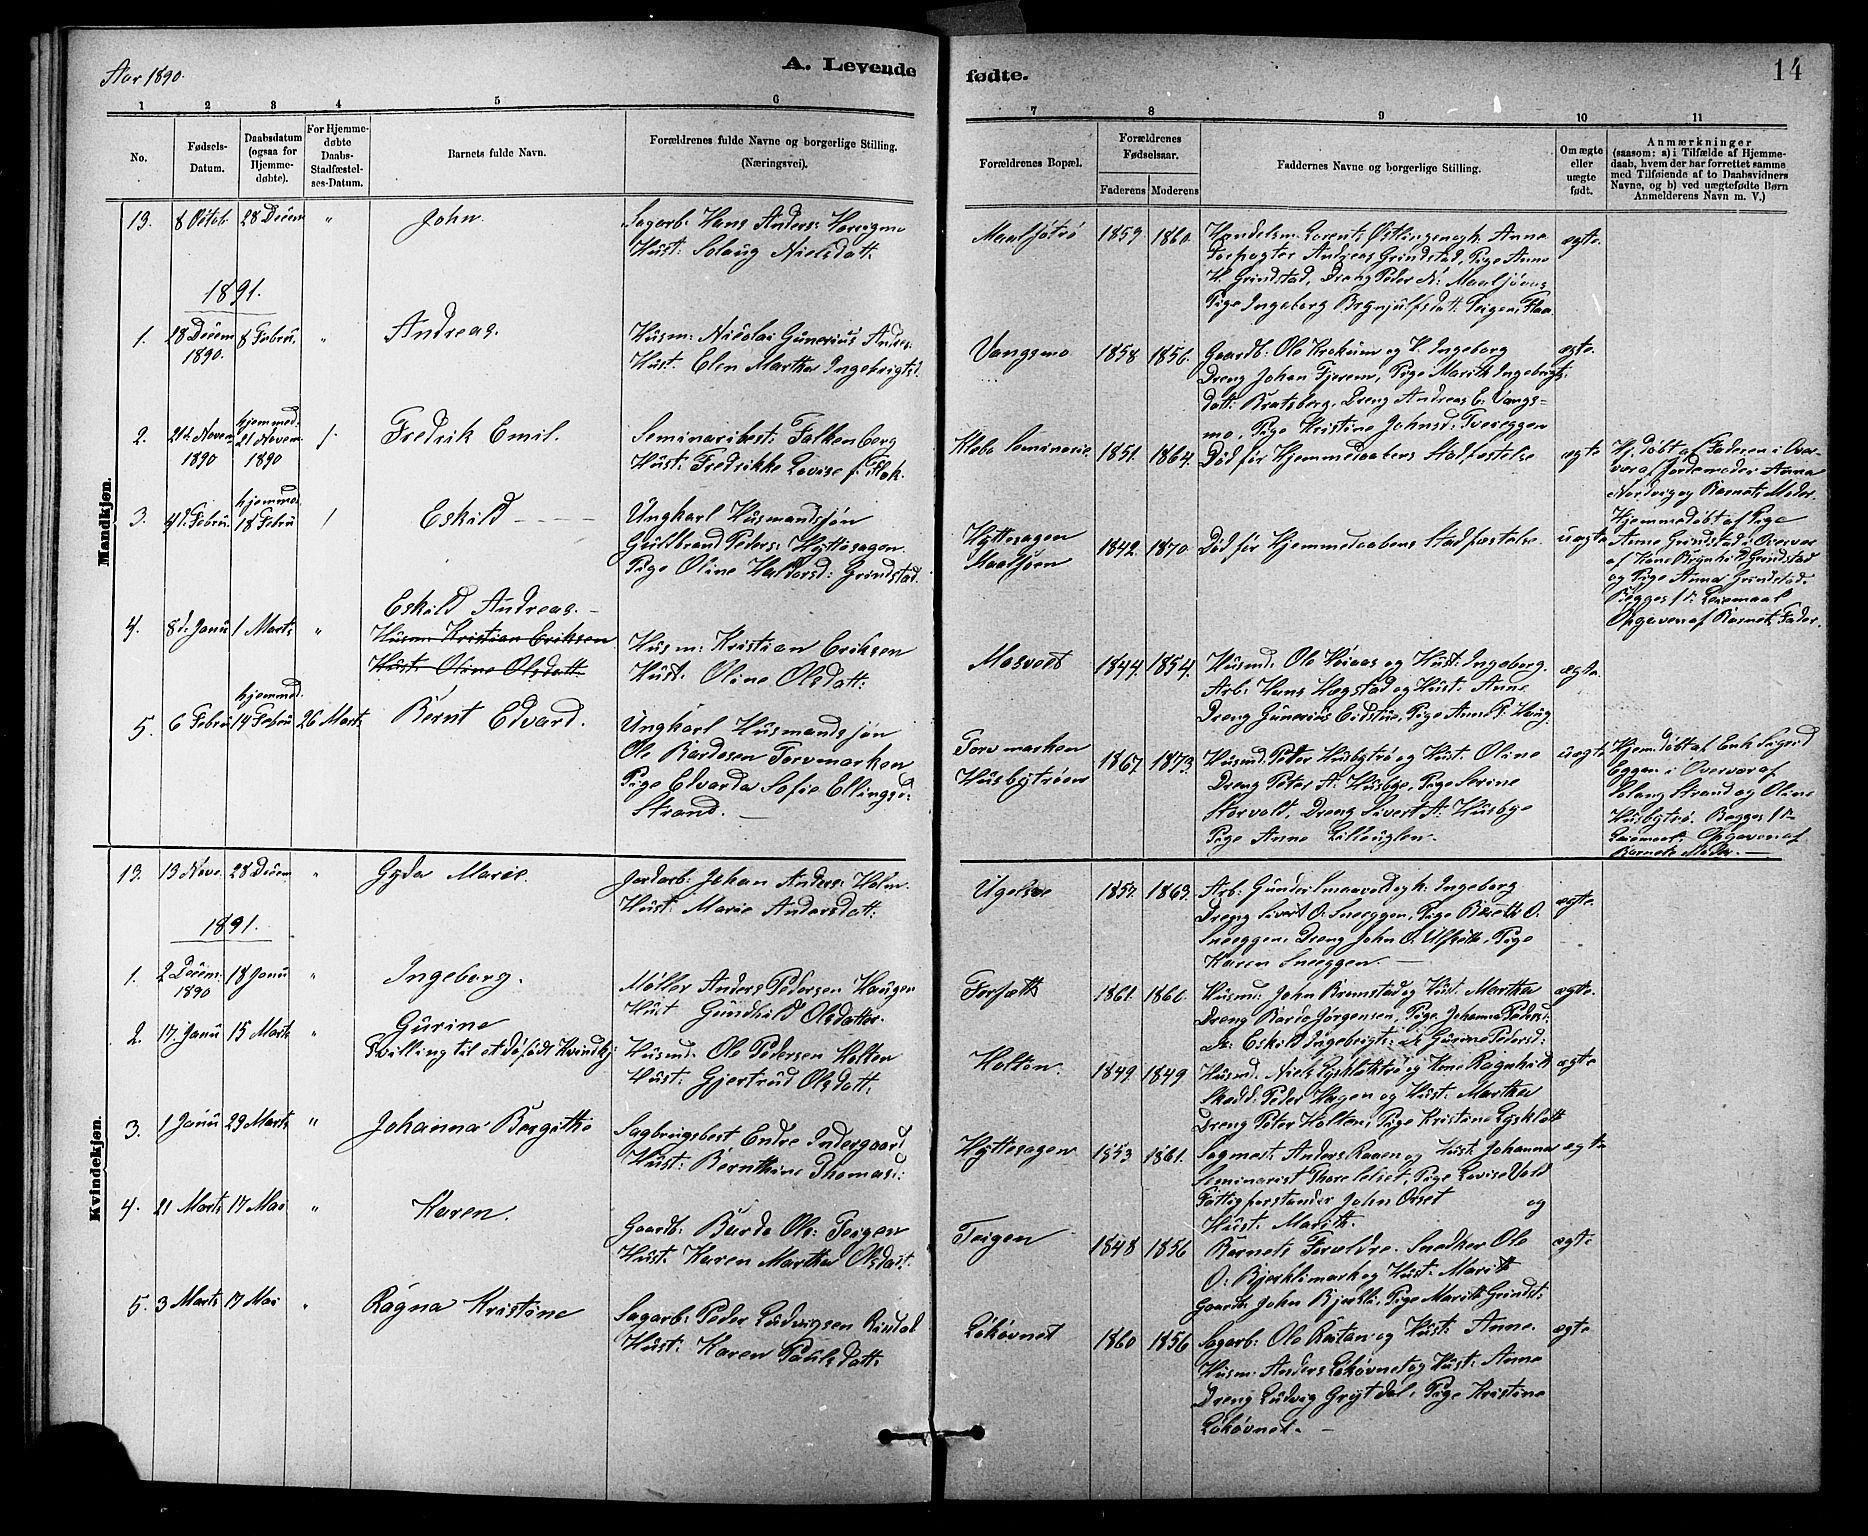 Aar 1890.
A. Levende
fødte.
14
1 2 3 4 5 6
7 8 9 10 11
No.
Fødsels-
Datum.
Daabsdatum
(ogsaa for
Hjemme-
døbte).
For Hjemme-
døbte
Daabs-
Stadfæstel-
ses-Datum.
Barnets fulde Navn.
Forældrenes fulde Navne og borgerlige Stilling.
(Næringsvei).
Forældrenes Bopæl.
Forældrenes
Fødselsaar.
Faderens Moderens
Faddernes Navne og borgerlige Stilling.
Om ægte
eller
uægte
født.
Anmærkninger
(saasom: a) i Tilfælde af Hjemme-
daab, hvem der har forrettet samme
med Tilføiende af to Daabsvidners
Navne, og b) ved uægtefødte Børn
Anmelderens Navn m. V.)
Mandkjøn.
13. 8 Octob 28 Decem " John.
Sagarb: Hans Anders:
Hust: Solaug Nielsdatt:
Maaljøtrø 1859 1860
Handelsm: Lorents Østlingen og h. Anne
Forpagter Andreas Grindstad, Pige Anne
H. Grindstad, Dreng Peder
Pige Ingeborg Brynjulfsdatt: Teigen, Flaa
ægte
1891.
1. 28 Decem 8 Febru. " Andreas.
1890.
Husm: Nicolai Gunerius Anders:
Hust. Elen Martha Ingebrigtsd.
Vangsmo 1858 1856
Gaardb: Ole Krokum og H. Ingeborg
Dreng Johan Fjerem, Pige Marith Ingebrigts-
datt: Bratsberg, Dreng Andreas Vangs-
mo, Pige Kristine Johnsd: Tvereggen
ægte.
2. 21d. Novem hjemmed: Fredrik Emil.
1890 21 Novem
1890
Seminaribest: Falkenberg
Hust: Fredrikke Lovise f: Flok.
Klæbo Seminarie 1851. 1864.
Død før Hjemmedaabens Stadfæstelse
ægte
Hj. døbt af Faderen i Over-
vær af Jordemoder Anna
Nordvig og Barnets Moder.
3. 4d. Febru. hjemmed. 18 Febru Eskild
Ungkarl Husmandssøn
Guldbrand Peders: Hyttesagen.
Pige Oline Haldorsd: Grindstad.
Hyttesagen
Maaljøen 1842. 1870.
Død før Hjemmedaabens Stadfæstelse.
uægte
Hjemmedøbt af Pige
Anne Grindstad i Overvær
af Hans Grindstad
og Pige Anna Grindstad.
Begges 1ste Leiermaal
Opgaven af Barnets Fader.
4. 8 d. Janu 1 Marts " Eskild Andreas.
Husm: Kristian Eriksen
Hust: Oline Olsdatt:
Husm: Kristian Eriksen
Hust. Oline Olsdatt:
Mosvolt 1844. 1854.
Husmd: Ole og Hust: Ingeborg.
Arb: Hans Hægstad og Hust: Anne
Dreng Gunerius Eidstue, Pige Anne P. Haug
ægte.
5. 6 Febru hjemmed: 14 Febru 26 Marts. Bernt Edvard.
Ungkarl Husmandssøn
Ole Bardosen Torvmarken
Pige Edvarda Sofie Ellingsd:
Strand.
Torvmarken
Husbytrøen 1867. 1873.
Husmd: Peter Husbytrø og Hust. Oline
Dreng Peter A: Husbye, Pige Serine
Storvold, Dreng Sivert A: Husbye
Pige Anne Lilleuglen.
uægte
Hjemdøbt af Enk Sigrid
Eggen i Overvær af
Solaug Strand og Oline
Husbytrø. Begges 1ste
Leierm: Opgaven af
Barnets Moder.
Kvindekjøn.
13. 13 Nove. 28 Decem " Gyda Marie.
Jordarb: Johan Anders: Holm.
Hust: Marie Andersdatt:
Ugelsøe 1857. 1863.
Arb: Gunder Smaavold og h: Ingeborg
Dreng Sivert O. Sneeggen, Pige Bereth O.
Sneeggen, Dreng John O. Ulseth, Pige
Karen Sneeggen.
ægte.
1891.
1. 2 Decem: 18 Janu " Ingeborg.
1890
Møller Anders Pedersen Haugen
Hust Gunhild Olsdatter.
Forseth 1861. 1860.
Husmd: John Brunstad og Hust. Martha
Dreng Jørgensen, Pige Johanna Peders:
Dr: Eskild Ingebrigt: P. Gurine Pedersd:
ægte.
2. 17. Janu 15 Marts " Gurine
Tvilling til et døfødt Kvindkj.
Husmd: Ole Pedersen Holten
Hust: Gjertrud Olsdatt.
Holten. 1849. 1849
Husmd: Niels Lyskløttrø og Kone Ragnhild
Skrædd: Peder Hægen og Hust: Martha
Dreng Peter Holten, Pige Kristine Lyskløtt
ægte
3. 1 Janu 29 Marts " Johanna Bergithe
Sagbrugsbest Endre Indergaard
Hust: Bernthine Thomasd:
Hyttesagen 1853 1861.
Sagmest. Anders Raaen og Hust Johanna
Seminarist Thore Lelset, Pige Lovise Vold
Fattigforstander John Orset og
Hust: Marith.
ægte
4. 21 Marts 17 Mai " Karen.
Gaardb: Barde Ols: Teigen
Hust: Karen Martha Olsdatt:
Teigen 1848 1856
Barnets Forældre. Snedker Ole
O. Bjerklimark og Hust: Marith
Gaardb. John Bjerkli, Pige Marith Grindst:
ægte
5. 3 Marts 17 Mai " Ragna Kristine
Sagarb: Peder Ludvigsen Rindal
Hust: Karen Paulsdatt:
Løkøvnet 1860 1856
Sagarb: Ole Rostan og Hust: Anne.
Husm: Anders Løkøvnet og Hust: Anne
Dreng Ludvig Grøtdal. Pige Kristine
Løkøvnet.
ægte